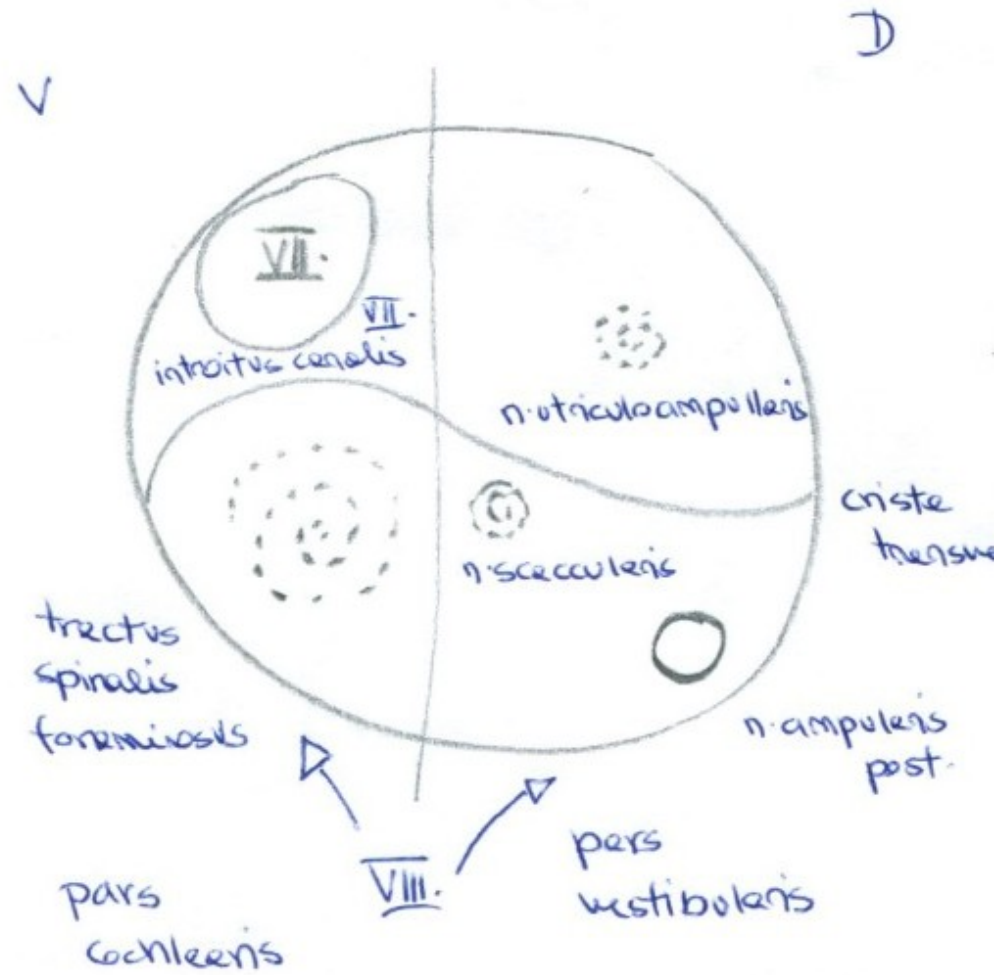 D
V
VII.
VII.
introitus canalis
n. utriculoampullaris
crista
transve
n. saccularis
tractus
spiralis
foraminosus
n. ampularis
post.
VIII.
pars
vestibularis
pars
cochlearis